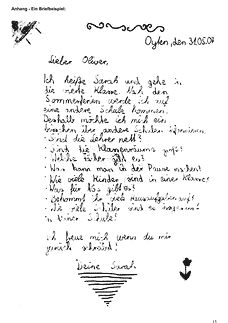 Anhang - Ein Briefbeispiel:
Oyten, den 31.05.08
Lieber Oliver,
Ich heiße Sarah und gehe in
die vierte Klasse. Nach den
Sommerferien werde ich auf
eine andere Schule kommen.
Deshalb möchte ich mich ein
bisschen über andere Schulen informieren.
Sind die Lehrer nett?
Sind die Klassenräume groß?
Welche Fächer gibt es?
Was kann man in der Pause machen?
Wie viele Kinder sind in einer Klasse?
Was für AGs gibt es?
Bekommt ihr viele Hausaufgaben auf?
Wie viele Schüler sind es insgesamt
in deiner Schule?
Ich freue mich wenn du mir
zurück schreibst!
Deine Sarah